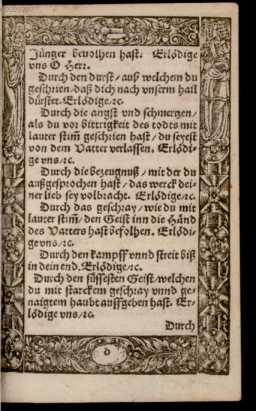 Jünger beuolhen hast. Erlödige
vns O Herr.
Durch den durst / auß welchem du
geschrien / daß dich nach vnserm hail
dürstet. Erlödige / ꝛc.
Durch die angst vnd schmertzen /
als du vor bittrigkeit des todts mit
lauter stim̃ geschrien hast / du seyest
von dem Vatter verlassen. Erlödi-
ge vns / ꝛc.
Durch die bezeugnuß / mit der du
außgesprochen hast / das werck dei-
ner lieb sey volbracht. Erlödige / ꝛc.
Durch das geschray / wie du mit
lautter stim̃ / den Geist inn die Händ
des Vatters hast befolhen. Erlödi-
ge vns / ꝛc.
Durch den kampff vnnd streit biß
in dein end. Erlödige / ꝛc.
Durch den süssesten Geist / welchen
du mit starckem geschray vnnd ge-
naigtem haubt auffgeben hast. Er-
lödige vns / ꝛc.
Durch